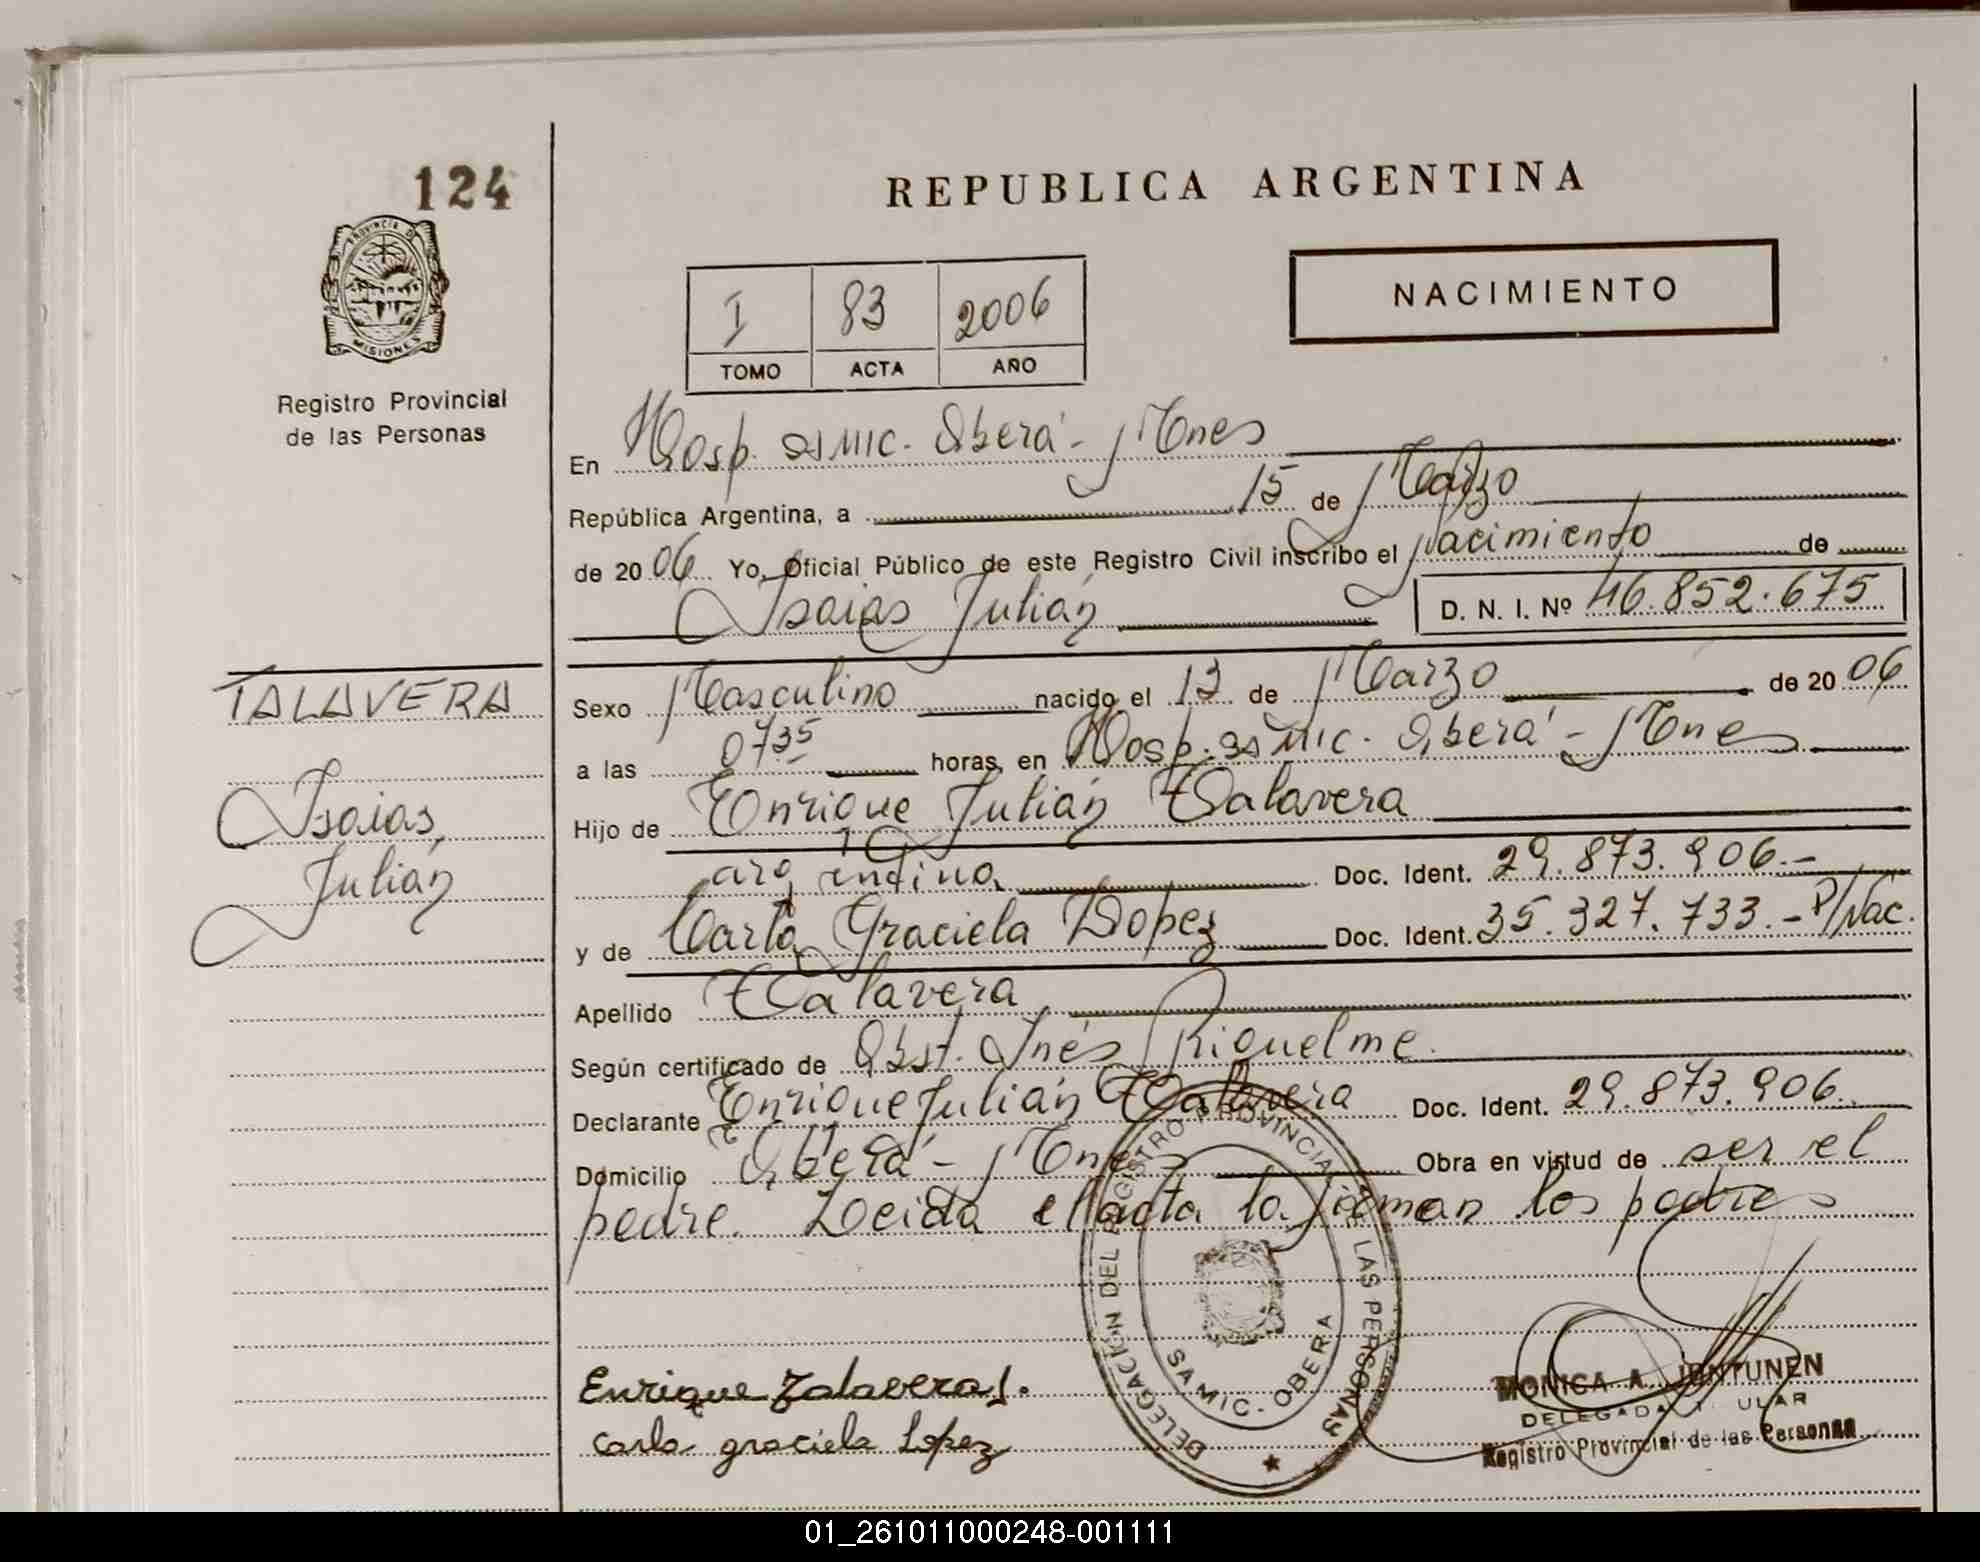 124
REPUBLICA ARGENTINA
PROVINCIA D
MISIONES
Registro Provincial
de las Personas
I 83 2006
TOMO ACTA AÑO
NACIMIENTO
En Hosp. SAMIC. Oberá - Mnes
República Argentina, a 15 de Marzo
de 2006 Yo, Oficial Público de este Registro Civil inscribo el nacimiento de
Isaias Julián D. N. I. Nº 46.852.675
TALAVERA
Isaias
Julián
Sexo Masculino nacido el 13 de Marzo de 2006
a las 0735 horas, en Hosp. SAMIC. Oberá - Mnes
Hijo de Enrique Julián Talavera
argentino Doc. Ident. 29.873.906.-
y de Carla Graciela Lopez Doc. Ident. 35.327.733.- P/Nac.
Apellido Talavera
Según certificado de Obst. Inés Riquelme.
Declarante Enrique Julián Talavera Doc. Ident. 29.873.906.
Domicilio Oberá - Mnes Obra en virtud de ser el
padre. Leida el acta la firman los padres
DELEGACION DEL REGISTRO PROVINCIAL DE LAS PERSONAS
SAMIC. OBERA
Enrique Talavera J.
Carla graciela Lopez
MONICA A. JONTUNEN
DELEGADA T ULAR
Registro Provincial de las Personas
01_261011000248-001111